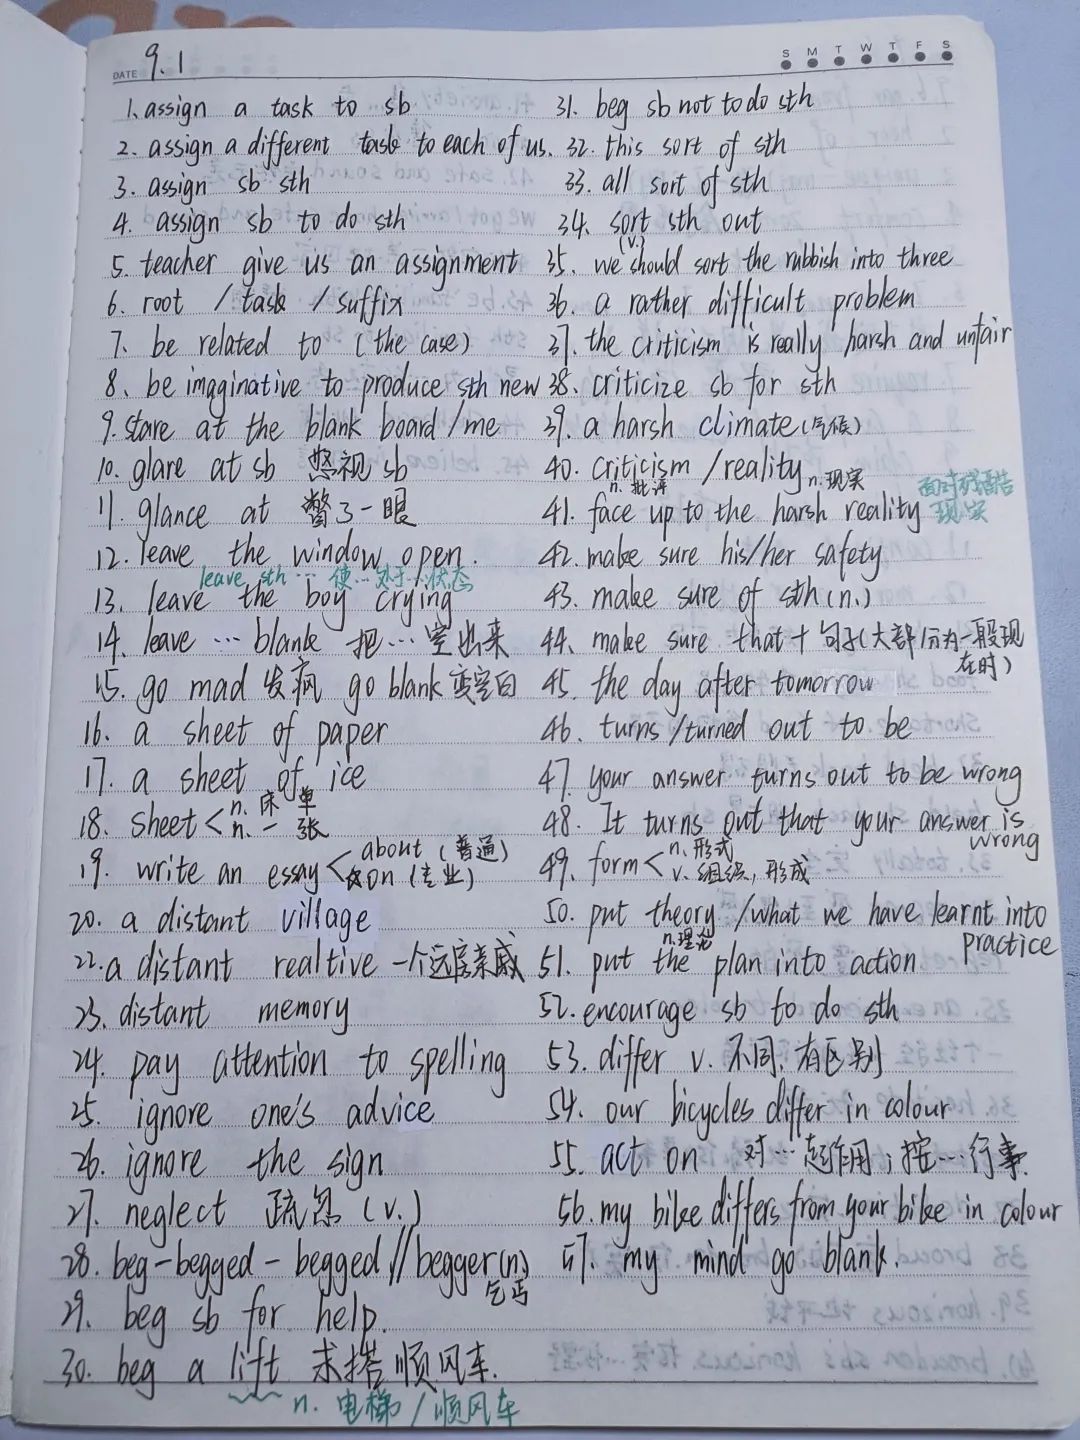 DATE 9.1
S M T W T F S
1. assign a task to sb
2. assign a different task to each of us.
3. assign sb sth
4. assign sb to do sth
5. teacher give us an assignment
6. root / task / suffix
7. be related to (the case)
8. be imaginative to produce sth new
9. stare at the blank board/me
10. glare at sb 怒视 sb
11. glance at 瞥了一眼
12. leave the window open.
leave sth … 使…处于…状态
13. leave the boy crying
14. leave … blank 把…空出来
15. go mad 发疯 go blank 变空白
16. a sheet of paper
17. a sheet of ice
18. sheet < n. 床单
n. 一张
19. write an essay < about (普通)
on (专业)
20. a distant village
22. a distant realtive 一个远房亲戚
23. distant memory
24. pay attention to spelling
25. ignore one's advice
26. ignore the sign
27. neglect 疏忽 (v.)
28. beg-begged-begged // begger(n)
乞丐
29. beg sb for help.
30. beg a lift 求搭顺风车.
n. 电梯 / 顺风车
31. beg sb not to do sth
32. this sort of sth
33. all sort of sth
34. sort sth out
(v.)
35. we should sort the rubbish into three
36. a rather difficult problem
37. the criticism is really harsh and unfair
38. criticize sb for sth
39. a harsh climate (气候)
40. criticism / reality n. 现实
n. 批评
41. face up to the harsh reality 面对残酷
现实
42. make sure his/her safety
43. make sure of sth (n.)
44. make sure that + 句子(大部分为一般现
在时)
45. the day after tomorrow
46. turns / turned out to be
47. your answer turns out to be wrong
48. It turns out that your answer is
wrong
49. form < n. 形式
v. 组织, 形成
50. put theory / what we have learnt into
n. 理论 practice
51. put the plan into action
52. encourage sb to do sth
53. differ v. 不同, 有区别
54. our bicycles differ in colour
55. act on 对…起作用; 按…行事.
56. my bike differs from your bike in colour
57. my mind go blank.